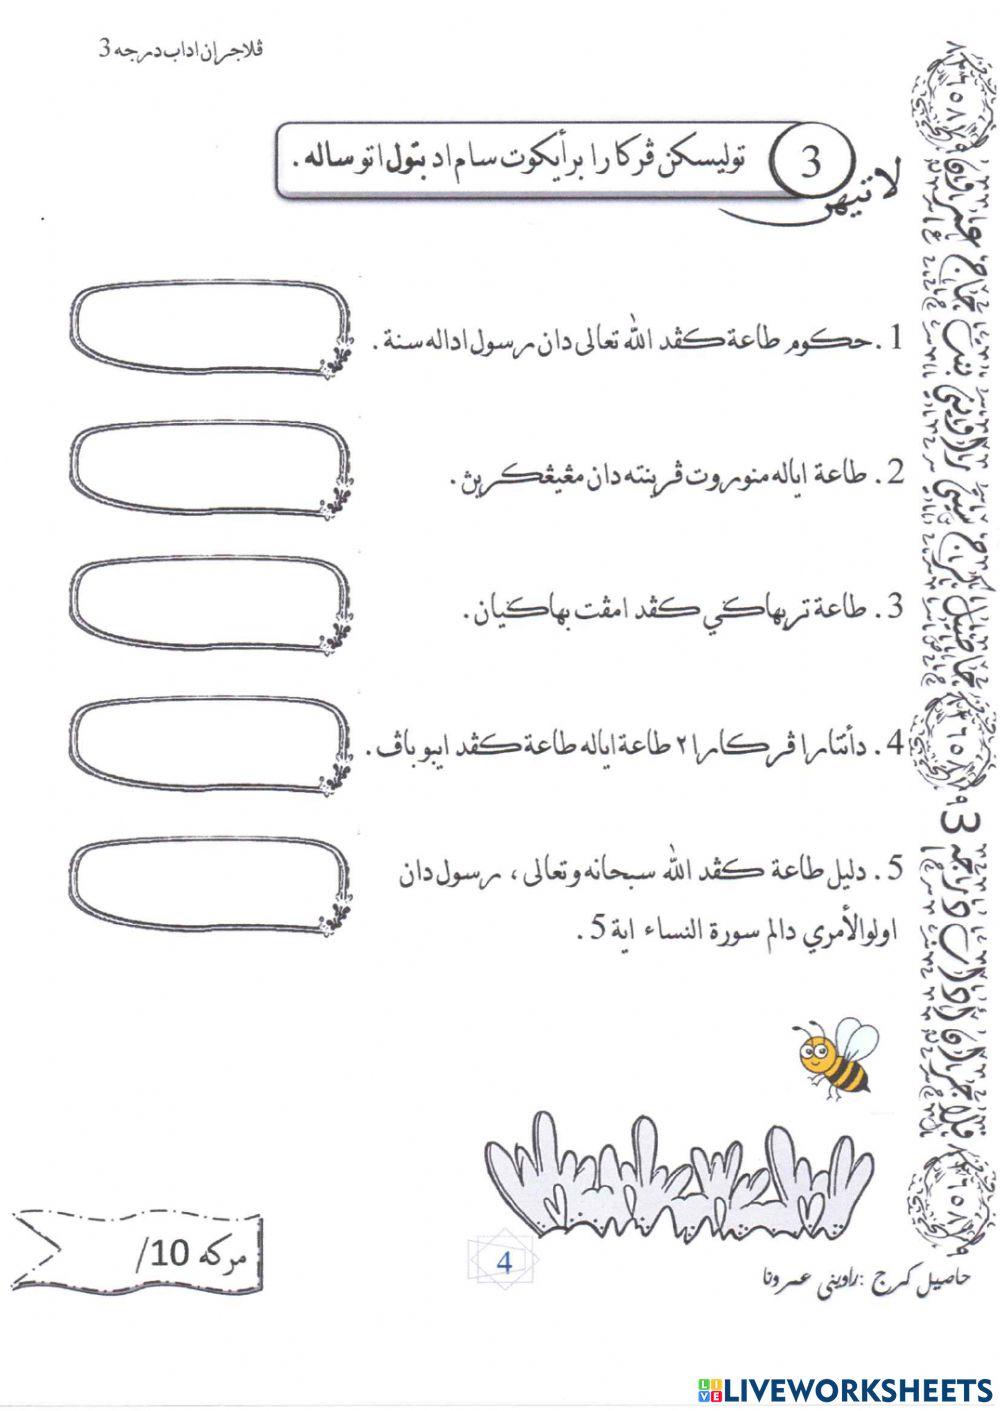 ڤلاجران اداب درجه 3
لاتيهن
3
توليسکن ڤرکارا برأيکوت سام اد بتول اتو ساله .
1 . حکوم طاعة کڤد الله تعالى دان رسول اداله سنة .
2 . طاعة اياله منوروت ڤرينته دان مڠيڠکرين .
3 . طاعة تربهاڬي کڤد امڤت بهاڬيان .
4 . دأنتارا ڤرکارا٢ طاعة اياله طاعة کڤد ايبوباڤ .
5 . دليل طاعة کڤد الله سبحانه وتعالى ، رسول دان
اولوالأمري دالم سورة النساء اية 5 .
مرکه 10/
4
حاصيل کرج : راويني عمرونا
LIVEWORKSHEETS